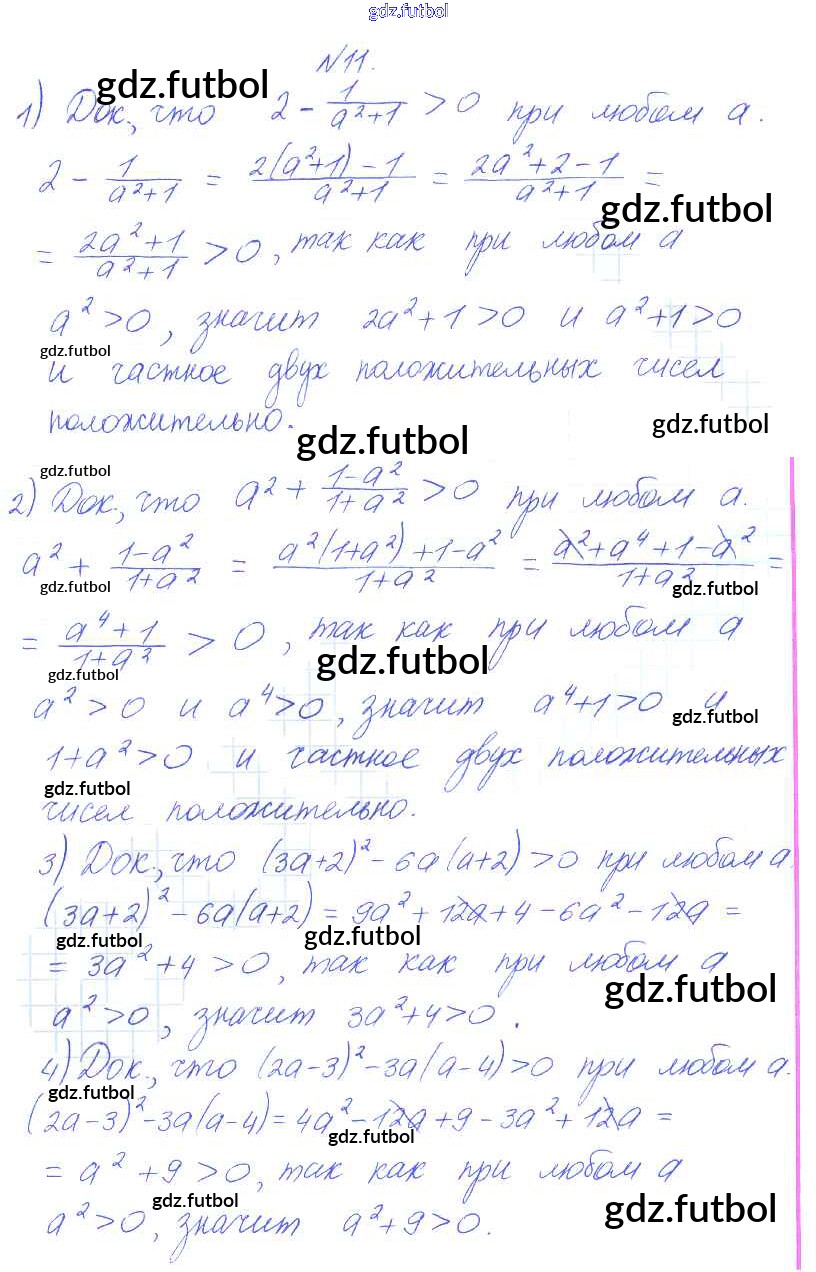 gdz.futbol
N11.
gdz.futbol
1) Док., что 2 - 1/(a²+1) > 0 при любом a.
2 - 1/(a²+1) = (2(a²+1) - 1)/(a²+1) = (2a²+2-1)/(a²+1) =
gdz.futbol
= (2a²+1)/(a²+1) > 0, так как при любом a
a² > 0, значит 2a²+1 > 0 и a²+1 > 0
gdz.futbol
и частное двух положительных чисел
положительно.
gdz.futbol
gdz.futbol
gdz.futbol
2) Док., что a² + (1-a²)/(1+a²) > 0 при любом a.
a² + (1-a²)/(1+a²) = (a²(1+a²)+1-a²)/(1+a²) = (a²+a⁴+1-a²)/(1+a²) =
gdz.futbol
= (a⁴+1)/(1+a²) > 0, так как при любом a
gdz.futbol
gdz.futbol
a² > 0 и a⁴ > 0, значит a⁴+1 > 0 и
gdz.futbol
1+a² > 0 и частное двух положительных
gdz.futbol
чисел положительно.
3) Док., что (3a+2)² - 6a(a+2) > 0 при любом a.
(3a+2)² - 6a(a+2) = 9a² + 12a + 4 - 6a² - 12a =
gdz.futbol
gdz.futbol
= 3a² + 4 > 0, так как при любом a
gdz.futbol
a² > 0, значит 3a²+4 > 0.
4) Док., что (2a-3)² - 3a(a-4) > 0 при любом a.
gdz.futbol
(2a-3)² - 3a(a-4) = 4a² - 12a + 9 - 3a² + 12a =
gdz.futbol
= a² + 9 > 0, так как при любом a
gdz.futbol
gdz.futbol
a² > 0, значит a²+9 > 0.